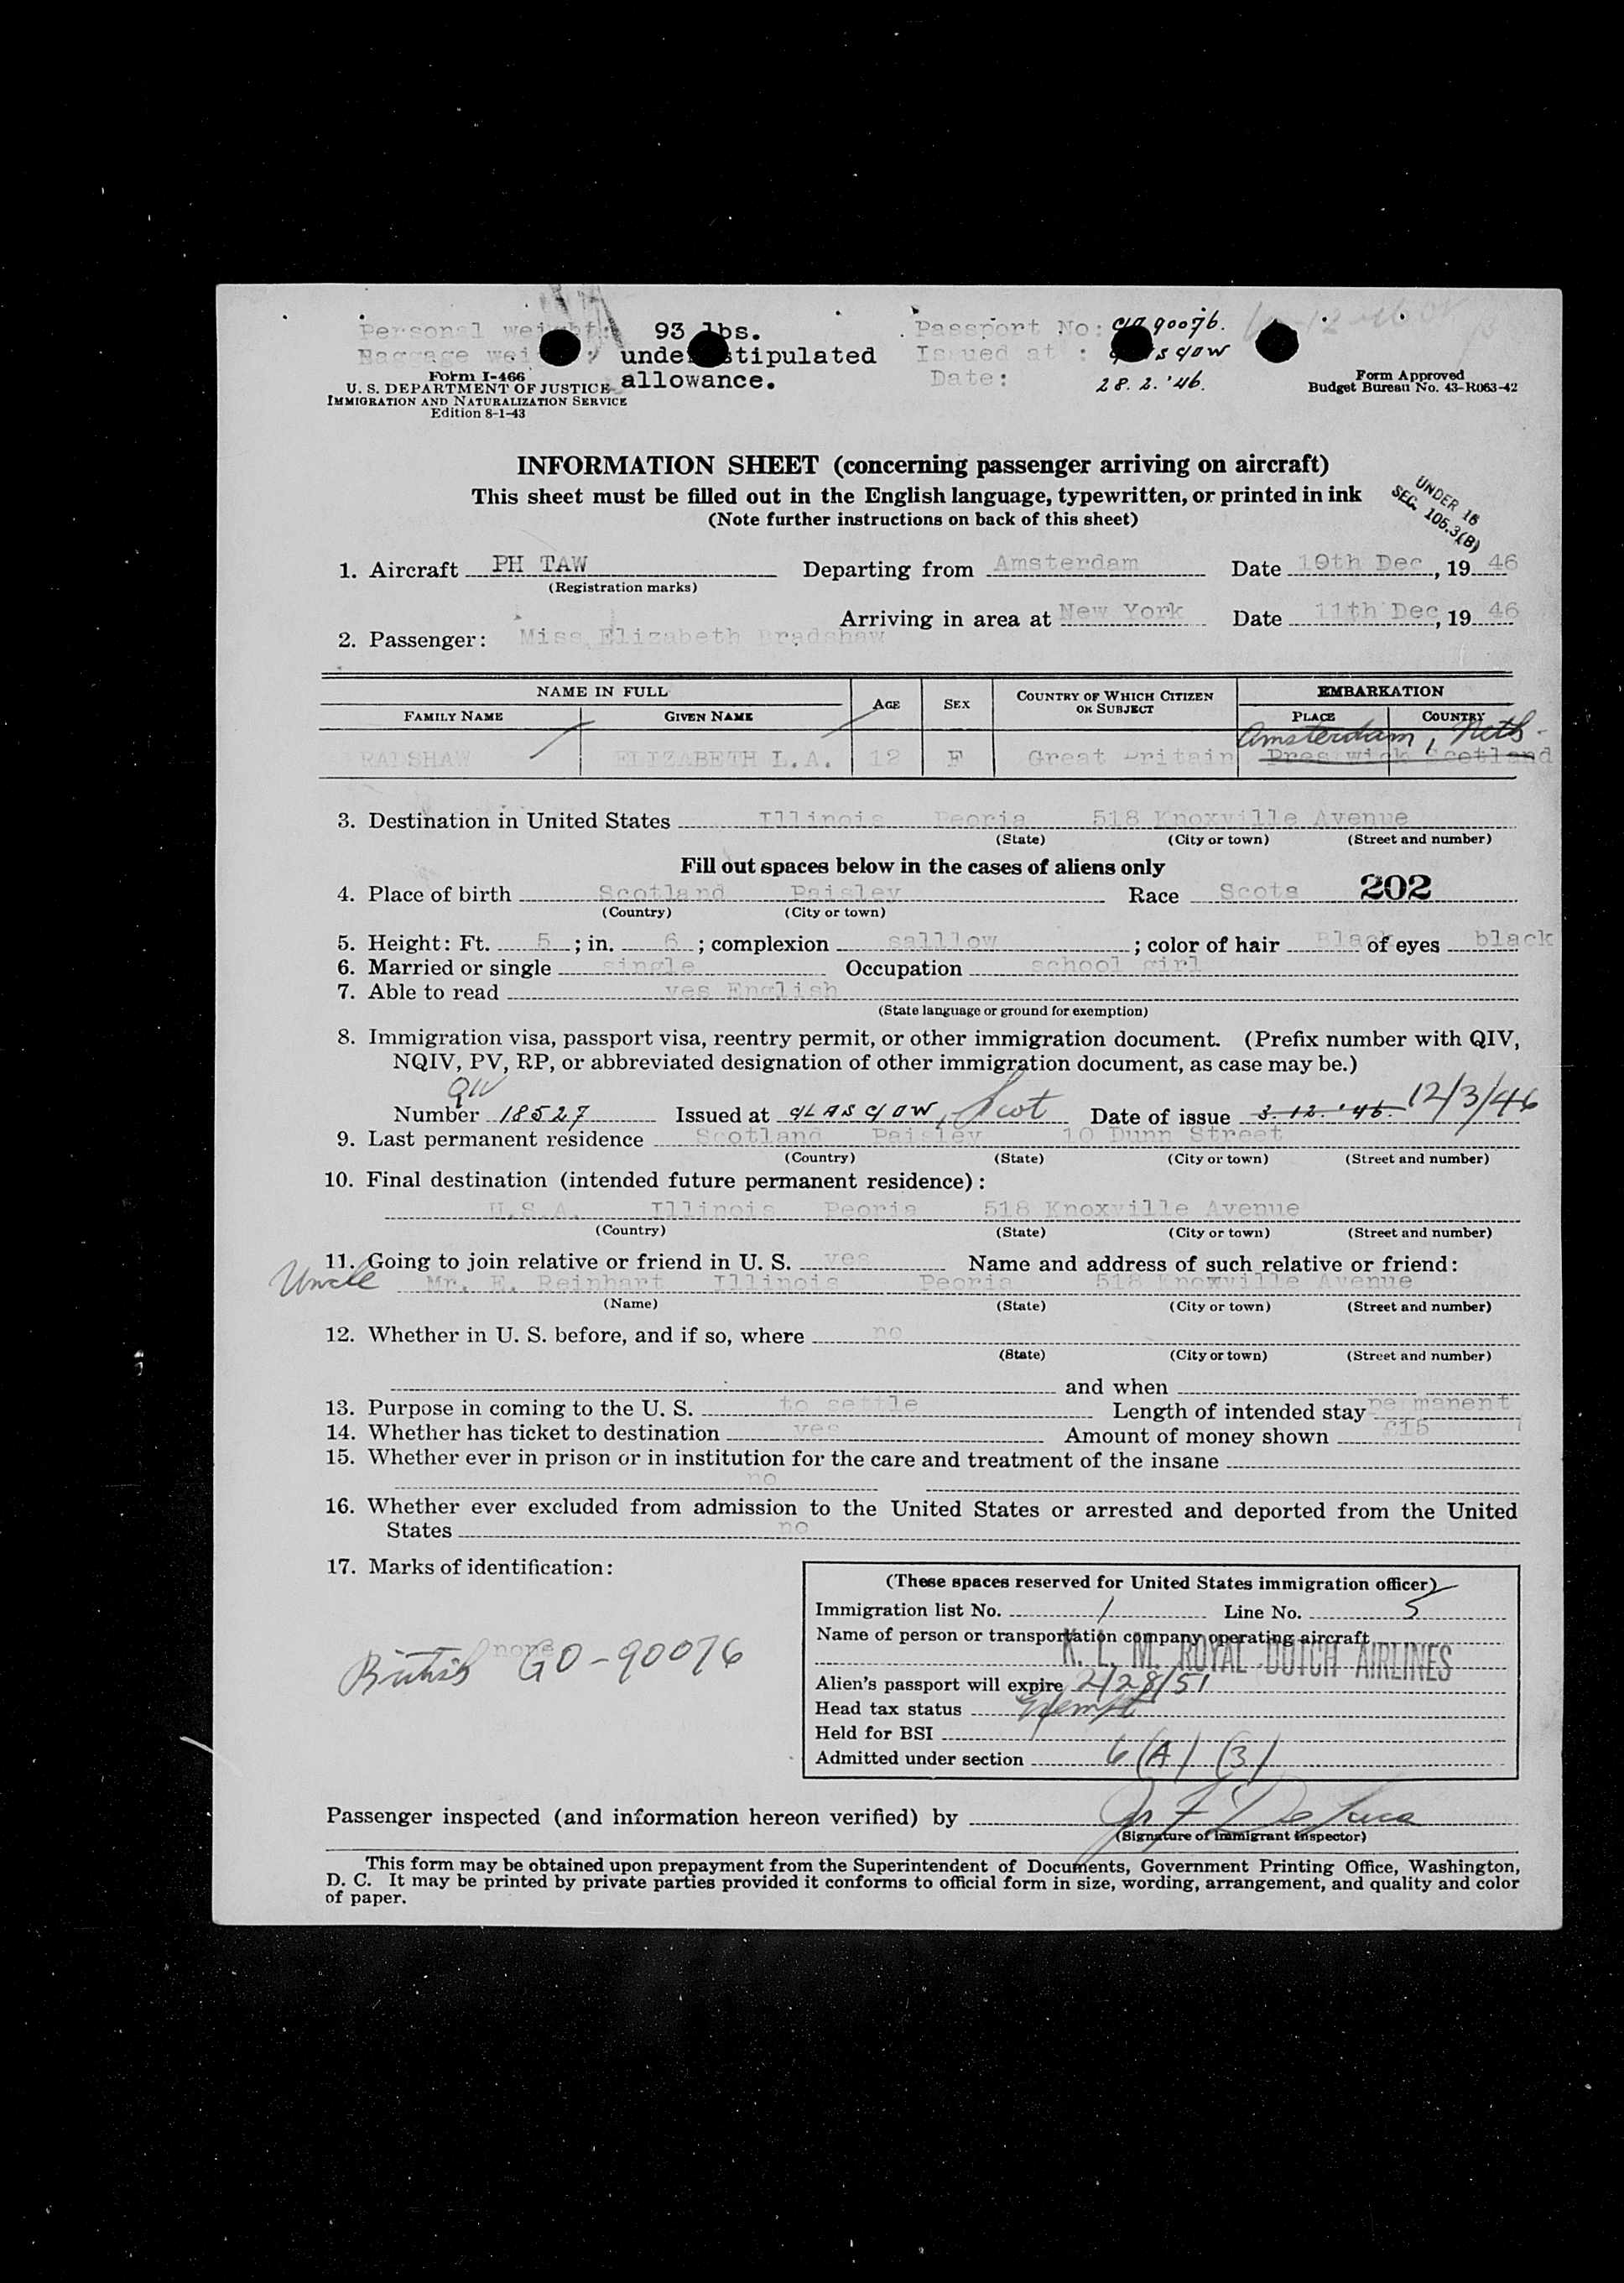 Personal weight: 93 lbs. Passport No: 90076.
Baggage under stipulated Issued at :
allowance. Date: 28.2.'46.
Form I-466
U. S. DEPARTMENT OF JUSTICE
IMMIGRATION AND NATURALIZATION SERVICE
Edition 8-1-43
Form Approved
Budget Bureau No. 43-R063-42
INFORMATION SHEET (concerning passenger arriving on aircraft)
This sheet must be filled out in the English language, typewritten, or printed in ink
(Note further instructions on back of this sheet)
UNDER 16
SEC. 105.3(B)
1. Aircraft PH TAW Departing from Amsterdam Date 10th Dec, 19 46
(Registration marks)
Arriving in area at New York Date 11th Dec, 19 46
2. Passenger: Miss Elizabeth Bradshaw
NAME IN FULL AGE SEX COUNTRY OF WHICH CITIZEN OR SUBJECT EMBARKATION
FAMILY NAME GIVEN NAME PLACE COUNTRY
Amsterdam, Neth.
RADSHAW ELIZABETH L.A. 12 F Great Britain Prestwick Scotland
3. Destination in United States Illinois Peoria 518 Knoxville Avenue
(State) (City or town) (Street and number)
Fill out spaces below in the cases of aliens only
4. Place of birth Scotland Paisley Race Scots 202
(Country) (City or town)
5. Height: Ft. 5; in. 6; complexion salllow; color of hair Black of eyes black
6. Married or single single Occupation school girl
7. Able to read yes English
(State language or ground for exemption)
8. Immigration visa, passport visa, reentry permit, or other immigration document. (Prefix number with QIV,
NQIV, PV, RP, or abbreviated designation of other immigration document, as case may be.)
QIV
Number 18527 Issued at GLASGOW, Scot Date of issue 3.12.'46. 12/3/46
9. Last permanent residence Scotland Paisley 10 Dunn Street
(Country) (State) (City or town) (Street and number)
10. Final destination (intended future permanent residence):
U.S.A. Illinois Peoria 518 Knoxville Avenue
(Country) (State) (City or town) (Street and number)
11. Going to join relative or friend in U. S. yes Name and address of such relative or friend:
Uncle Mr. E. Reinhart Illinois Peoria 518 Knowville Avenue
(Name) (State) (City or town) (Street and number)
12. Whether in U. S. before, and if so, where no
(State) (City or town) (Street and number)
and when
13. Purpose in coming to the U. S. to settle Length of intended stay permanent
14. Whether has ticket to destination yes Amount of money shown £15
15. Whether ever in prison or in institution for the care and treatment of the insane
no
16. Whether ever excluded from admission to the United States or arrested and deported from the United
States no
17. Marks of identification:
none
British GO-90076
(These spaces reserved for United States immigration officer)
Immigration list No. 1 Line No. 5
Name of person or transportation company operating aircraft
K. L. M. ROYAL DUTCH AIRLINES
Alien's passport will expire 2/28/51
Head tax status Exempt
Held for BSI
Admitted under section 6(A) (3)
Passenger inspected (and information hereon verified) by De Luca
(Signature of immigrant inspector)
This form may be obtained upon prepayment from the Superintendent of Documents, Government Printing Office, Washington,
D. C. It may be printed by private parties provided it conforms to official form in size, wording, arrangement, and quality and color
of paper.